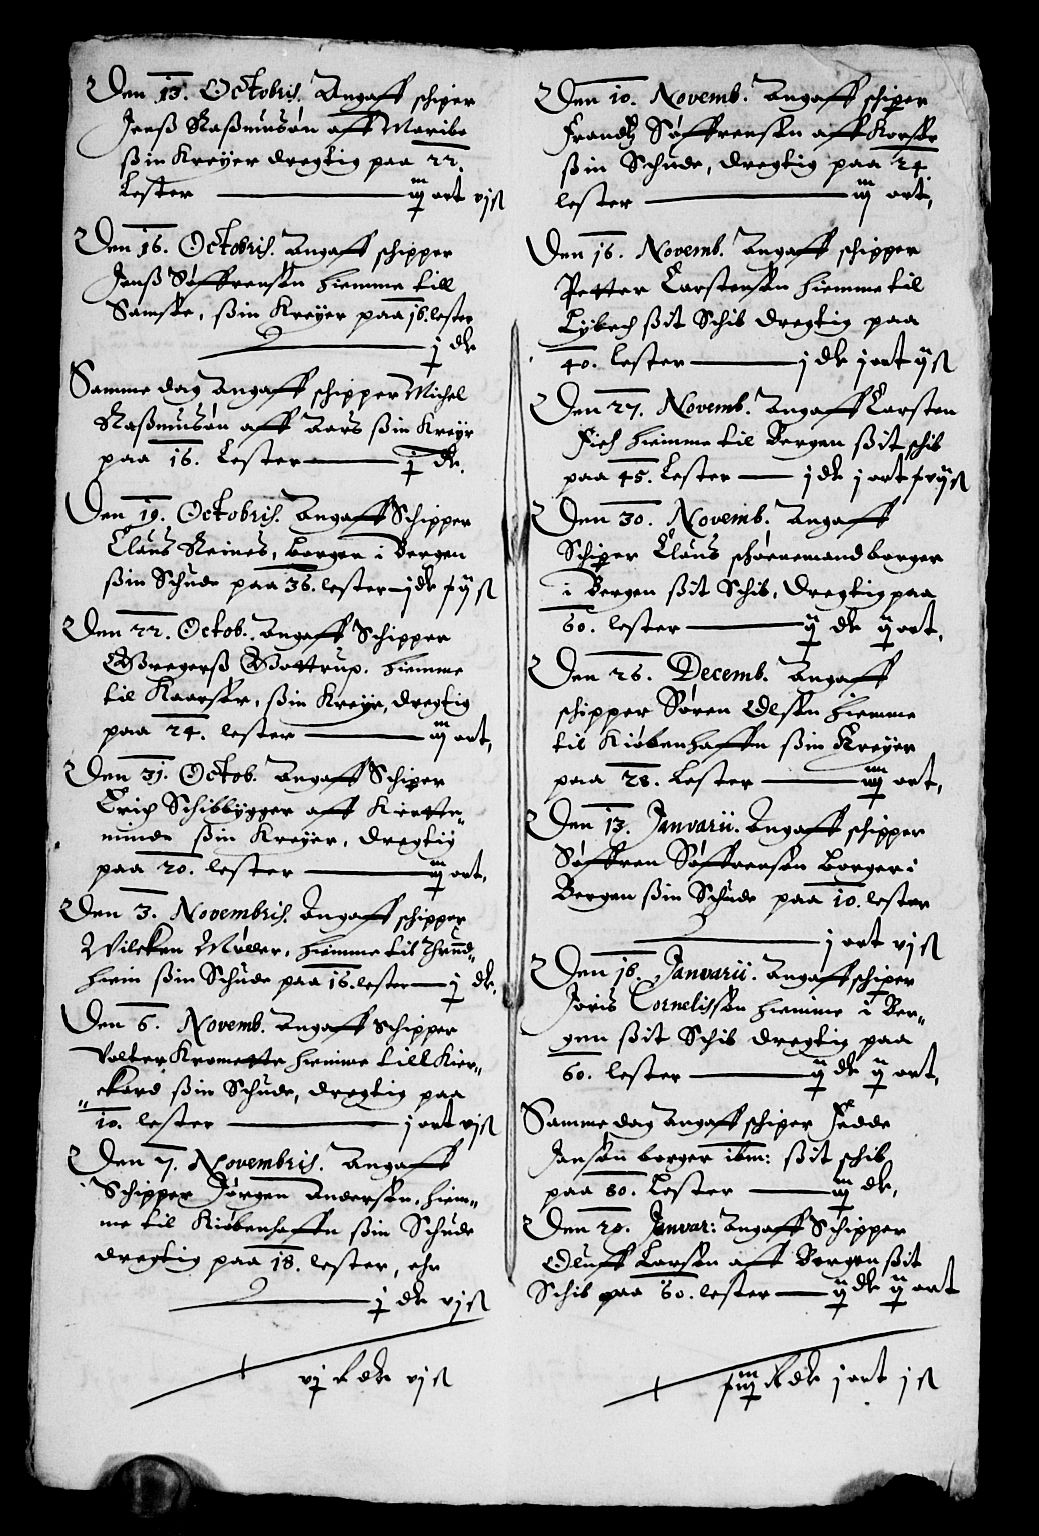 Den 13. Octobris. Angaff schiper
Jenß Raßmusøn aff Maribo
ßin Kreyer dregtig paa 22.
Lester iij ort vj ß
Den 16. Octobris. Angaff schipper
Jenß Søffrensøn hiemme till
Samsøe, ßin Kreyer paa 16. lester
j dlr
Samme dag Angaff schipper Michel
Raßmusøn aff Aars ßin Kreyr
paa 16. Lester j dlr.
Den 19. Octobris. Angaff Schipper
Claus Reines, borger i Bergen
ßin Schude paa 36. lester j dlr
Den 22. Octob. Angaff Schipper
Gregerß Gottrup. hiemme
til Kaarsør, ßin Kreyr, dregtig
paa 24. lester iij ort,
Den 31. Octob. Angaff Schiper
Erich Schibbygger aff Kiertte-
minde ßin Kreyer, dregtig
paa 20. lester iij ort.
Den 3. Novembris. Angaff schipper
Wilcken Møller, hiemme til Thrund-
hiem ßin Schude paa 16. lester j dlr.
Den 6. Novemb. Angaff schipper
Volter hiemme till Kier-
ßin Schude, dregtig paa
10. lester j ort vj ß
Den 7. Novembris. Angaff
Schipper Jørgen Andersøn, hiem-
me til Kiøbenhaffn ßin Schude
dregtig paa 18. lester, ehr
j dlr vj ß
dlr vj ß
Den 10. Novemb. Angaff schiper
Frandtz Søffrensøn aff Korsør
ßin Schude, dregtig paa 24.
lester iij ort,
Den 16. Novemb. Angaff schipper
Petter Carstensøn hiemme til
Lybech ßit Schib dregtig paa
40. lester j dlr j ort ij ß
Den 27. Novemb. Angaff Carsten
hiemme til Bergen ßit schib
paa 45. Lester j dlr j ort
Den 30. Novemb. Angaff
Schiper Claus schønemand borger
i Bergen ßit Schib, dregtig paa
60. lester ij dlr ij ort,
Den 26. Decemb. Angaff
schipper Søren Olsøn hiemme
til Kiøbenhaffn ßin Kreyer
paa 28. Lester iiij ort,
Den 13. Janvarii. Angaff schipper
Søffren Søffrensøn Borger i
Bergen ßin Schude paa 10. lester
j ort vj ß
Den 16. Janvarii. Angaff schiper
Joris Cornelissøn hiemme i Ber-
gen ßit Schib dregtig paa
60. lester ij dlr ij ort,
Samme dag Angaff schiper Fedde
Jansøn borger ibm: ßit schib
paa 80. Lester iij dlr,
Den 20. Janvar: Angaff Schipper
Oluff Larsøn aff Bergen ßit
Schib paa 60. lester ij dlr ij ort
dlr j ort j ß